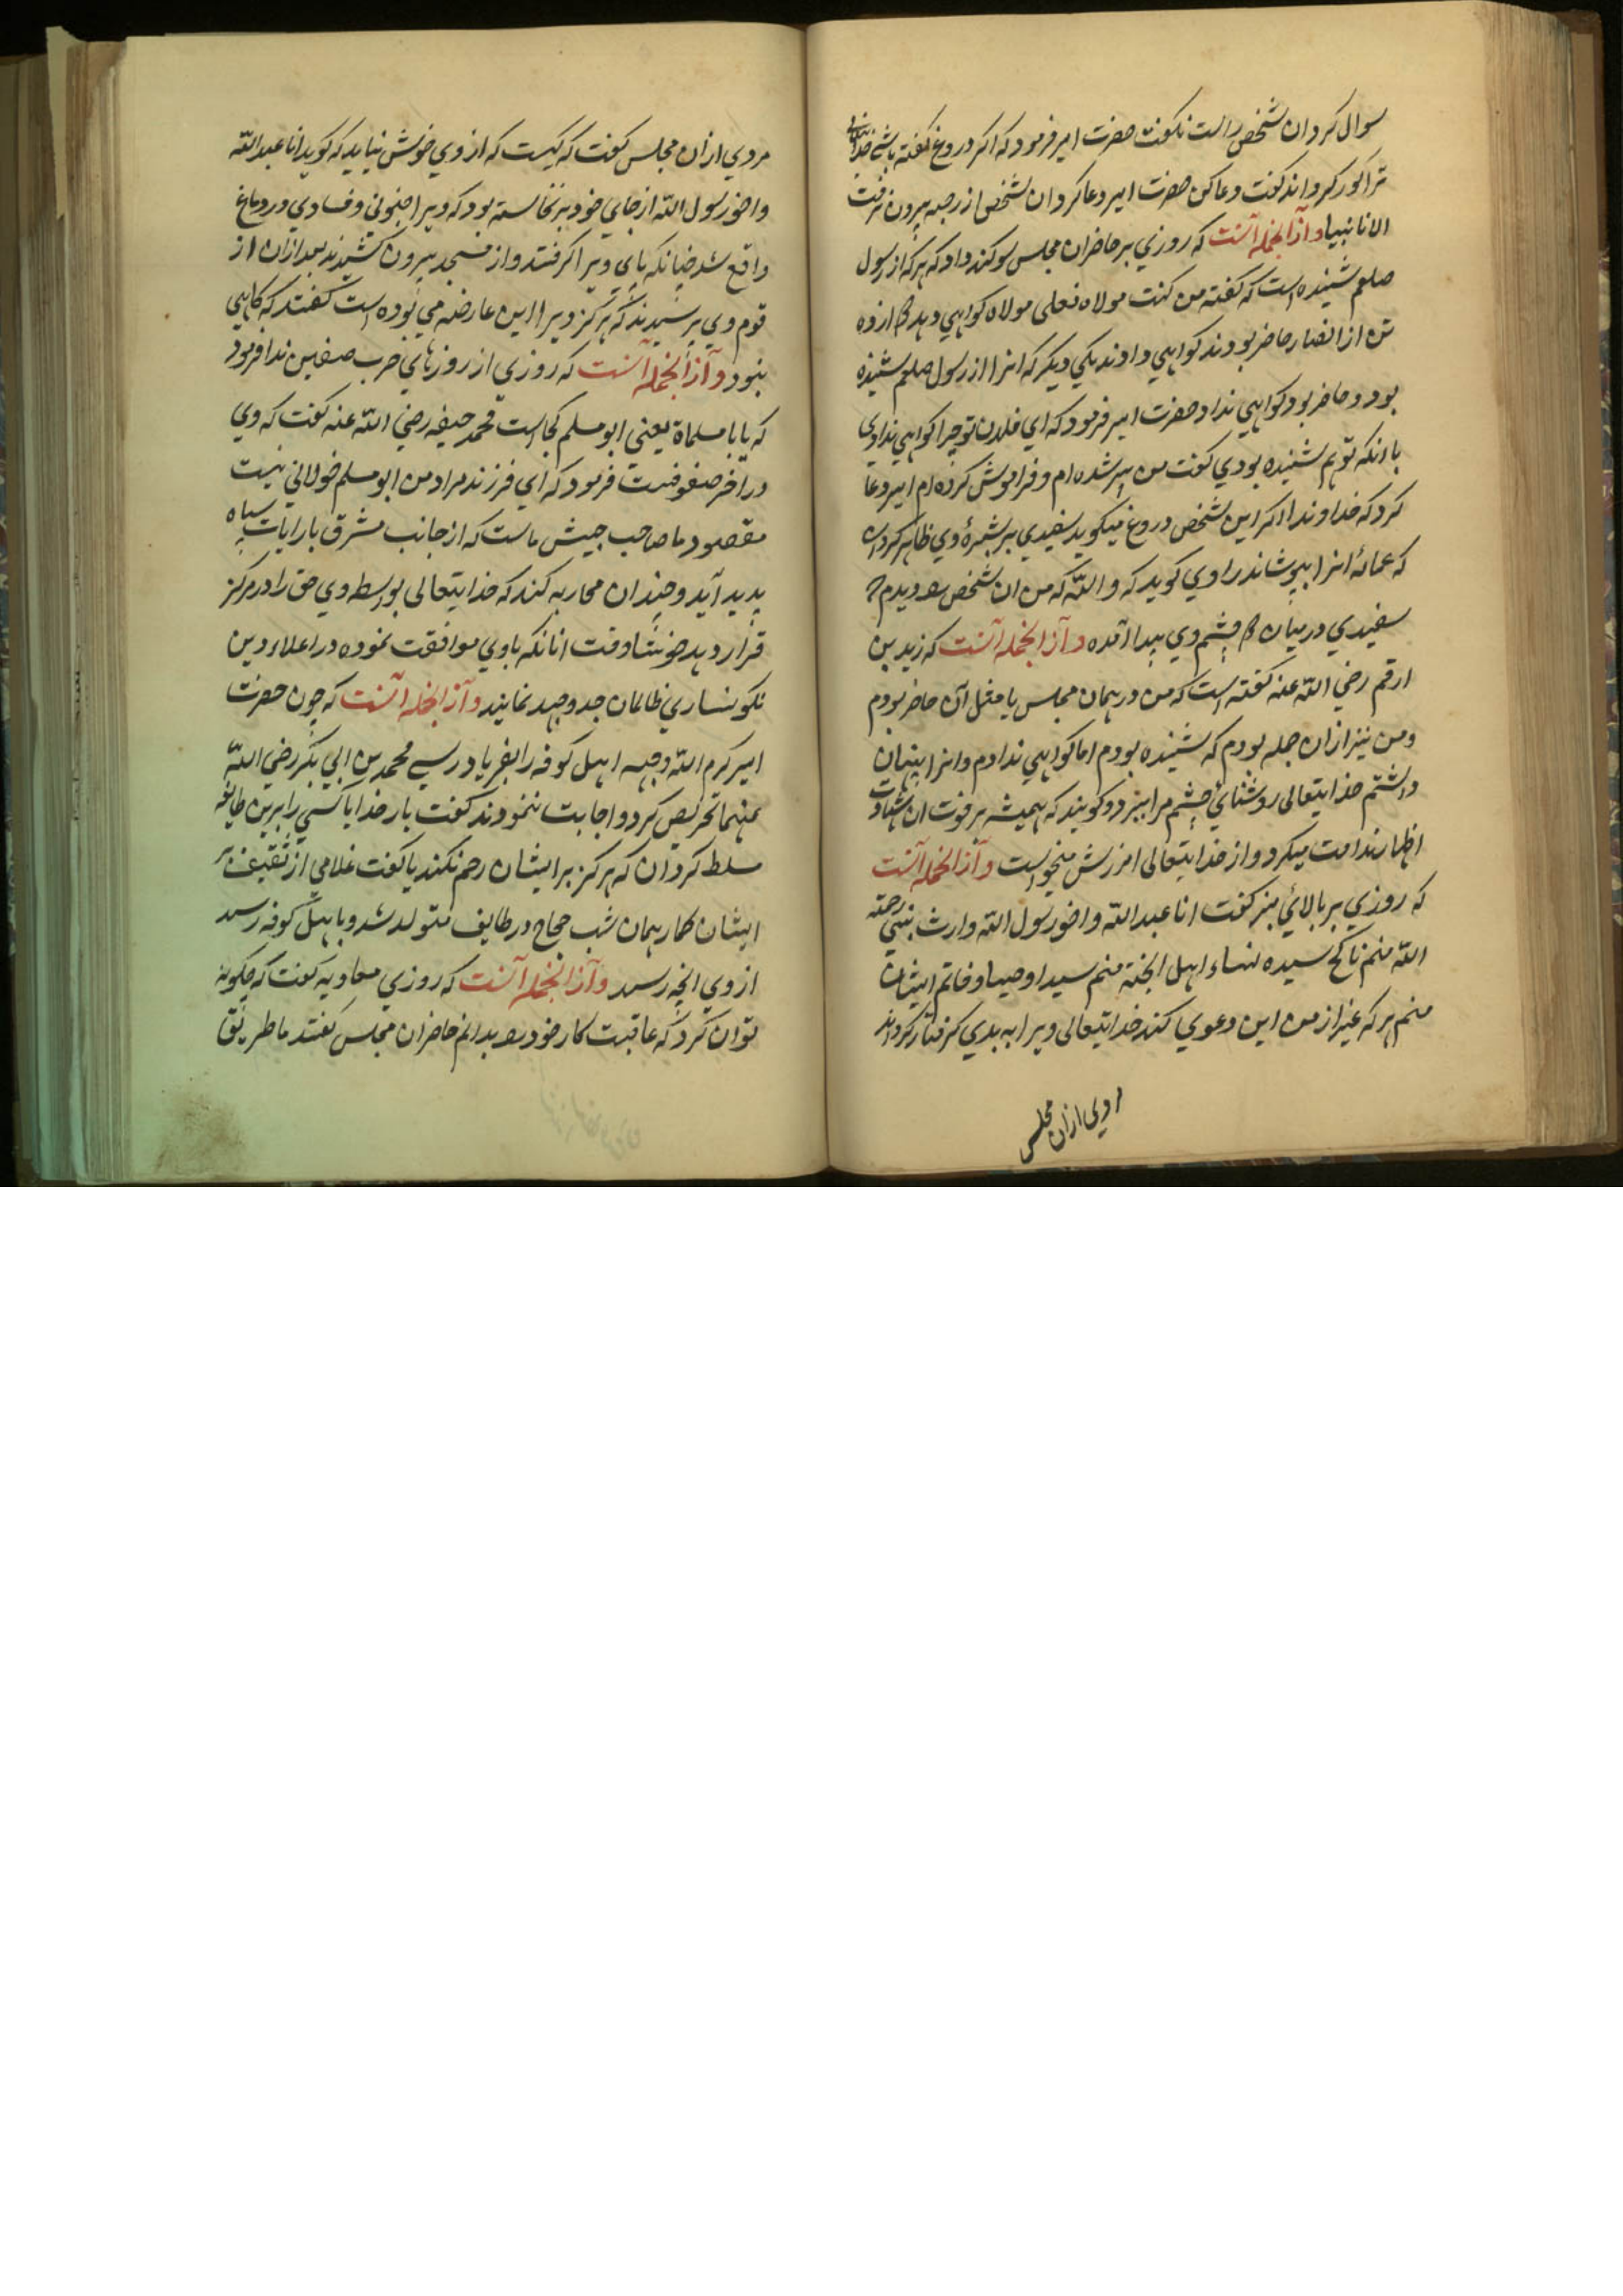 سوال کرد ان شخص راست نکفت حضرت امیر فرمود که اکر دروغ کفته باشی خدایتعالی
ترا کور کرداند کفت دعا کن حضرت امیر دعا کرد ان شخص از رحبه بیرون نرفت
الا نابینا و از انجمله آنست که روزی بر حاضران مجلس سوکند داد که هر که از رسول
صلعم شنیده است که کفته من کنت مولاه فعلی مولاه کواهی دهد دوازده
تن از انصار حاضر بودند کواهی دادند یکی دیکر که انرا از رسول صلعم شنیده
بود و حاضر بود کواهی نداد حضرت امیر فرمود که ای فلان تو چرا کواهی ندادی
با انکه تو هم شنیده بودی کفت من پیر شده ام و فراموش کرده ام امیر دعا
کرد که خداوندا اکر این شخص دروغ میکوید سفیدی بر بشرۀ وی ظاهر کردان
که عمامۀ انرا بپوشاند راوی کوید که والله که من ان شخص را دیدم
سفیدی در میان دو چشم وی پیدا آمده و از انجمله آنست که زید بن
ارقم رضی الله عنه کفته است که من در همان مجلس یا مثل آن حاضر بودم
و من نیز ازان جمله بودم که شنیده بودم اما کواهی ندادم و انرا پنهان
داشتم خدایتعالی روشنایی چشم مرا ببرد و کویند که همیشه بر فوت ان شهادت
اظهار ندامت میکرد و از خدایتعالی امرزش میخواست و از انجمله آنست
که روزی بر بالای منبر کفت انا عبدالله و اخو رسول الله وارث نبی رحمته
الله منم ناکح سیده نساء اهل الجنة منم سید اوصیا و خاتم ایشان
منم هر که غیر از من این دعوی کند خدایتعالی ویرا به بدی کرفتار کرداند
مردی ازان مجلس
مردی ازان مجلس کفت که کیست که از وی خوش نیاید که کوید انا عبدالله
و اخو رسول الله از جای خود بر نخاسته بود که ویرا جنونی و فسادی در دماغ
واقع شد چنانکه پای ویرا کرفتند و از مسجد بیرون کشیدند بعد ازان از
قوم وی پرسیدند که هرکز ویرا این عارضه می بوده است کفتند که کاهی
نبود و از انجمله آنست که روزی از روزهای حرب صفین ندا فرمود
که یا با مسلماة یعنی ابو مسلم کجاست محمد حنیفه رضی الله عنه کفت که وی
در اخر صفوفست فرمود که ای فرزند مراد من ابو مسلم خولانی نیست
مقصود ما صاحب جیش ماست که از جانب مشرق با رایات سیاه
پدید آید و چندان محاربه کند که خدایتعالی بواسطه وی حق را در مرکز
قرار دهد خوشا وقت انانکه با وی موافقت نموده در اعلاء دین
نکونساری ظالمان جد و جهد نمایند و از انجمله آنست که چون حضرت
امیر کرم الله وجهه اهل کوفه را بفریاد رسی محمد بن ابی بکر رضی الله
عنهما تحریص کرد و اجابت ننمودند کفت بار خدایا کسی را برین طایفه
مسلط کردان که هرکز بر ایشان رحم نکند یا کفت غلامی از ثقیف بر
ایشان کمار همان شب حجاج در طایف متولد شد و باهل کوفه رسید
از وی انچه رسید و از انجمله آنست که روزی معاویه کفت که چکونه
توان کرد که عاقبت کار خود را بدانم حاضران مجلس کفتند ما طریق